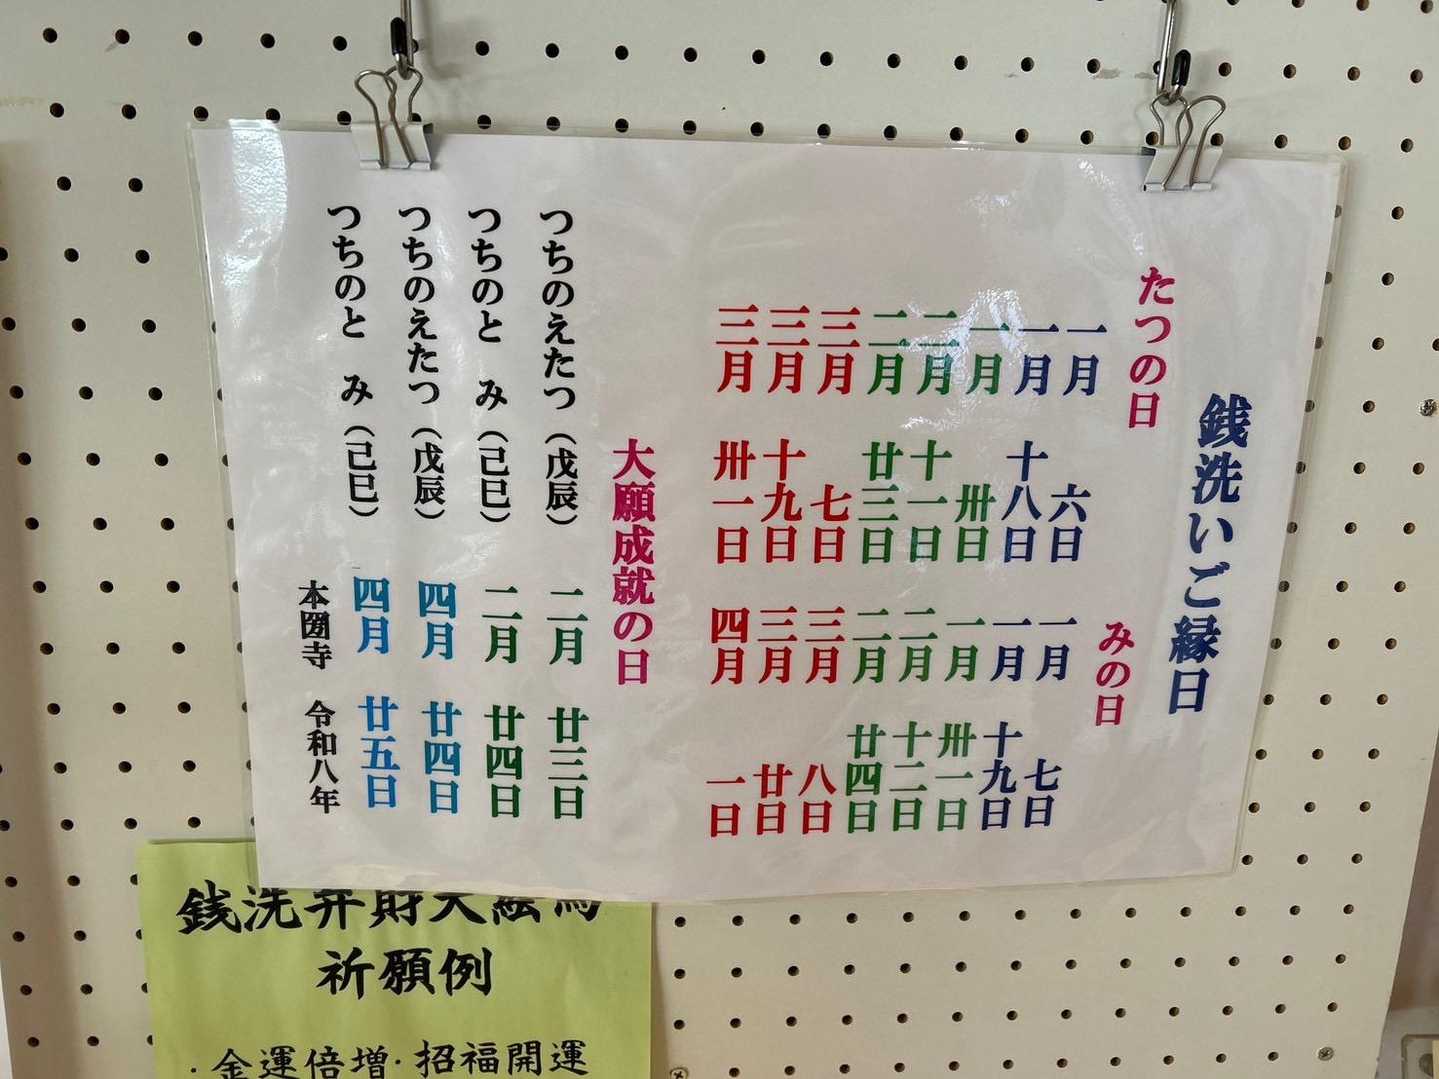 銭洗いご縁日
たつの日
一月 六日
一月 十八日
一月 卅日
二月 十一日
二月 廿三日
三月 七日
三月 十九日
三月 卅一日
みの日
一月 七日
一月 十九日
一月 卅一日
二月 十二日
二月 廿四日
三月 八日
三月 廿日
四月 一日
大願成就の日
つちのえたつ（戊辰） 二月 廿三日
つちのと み（己巳） 二月 廿四日
つちのえたつ（戊辰） 四月 廿四日
つちのと み（己巳） 四月 廿五日
本圀寺 令和八年
銭洗弁財天絵馬
祈願例
・金運倍増・招福開運